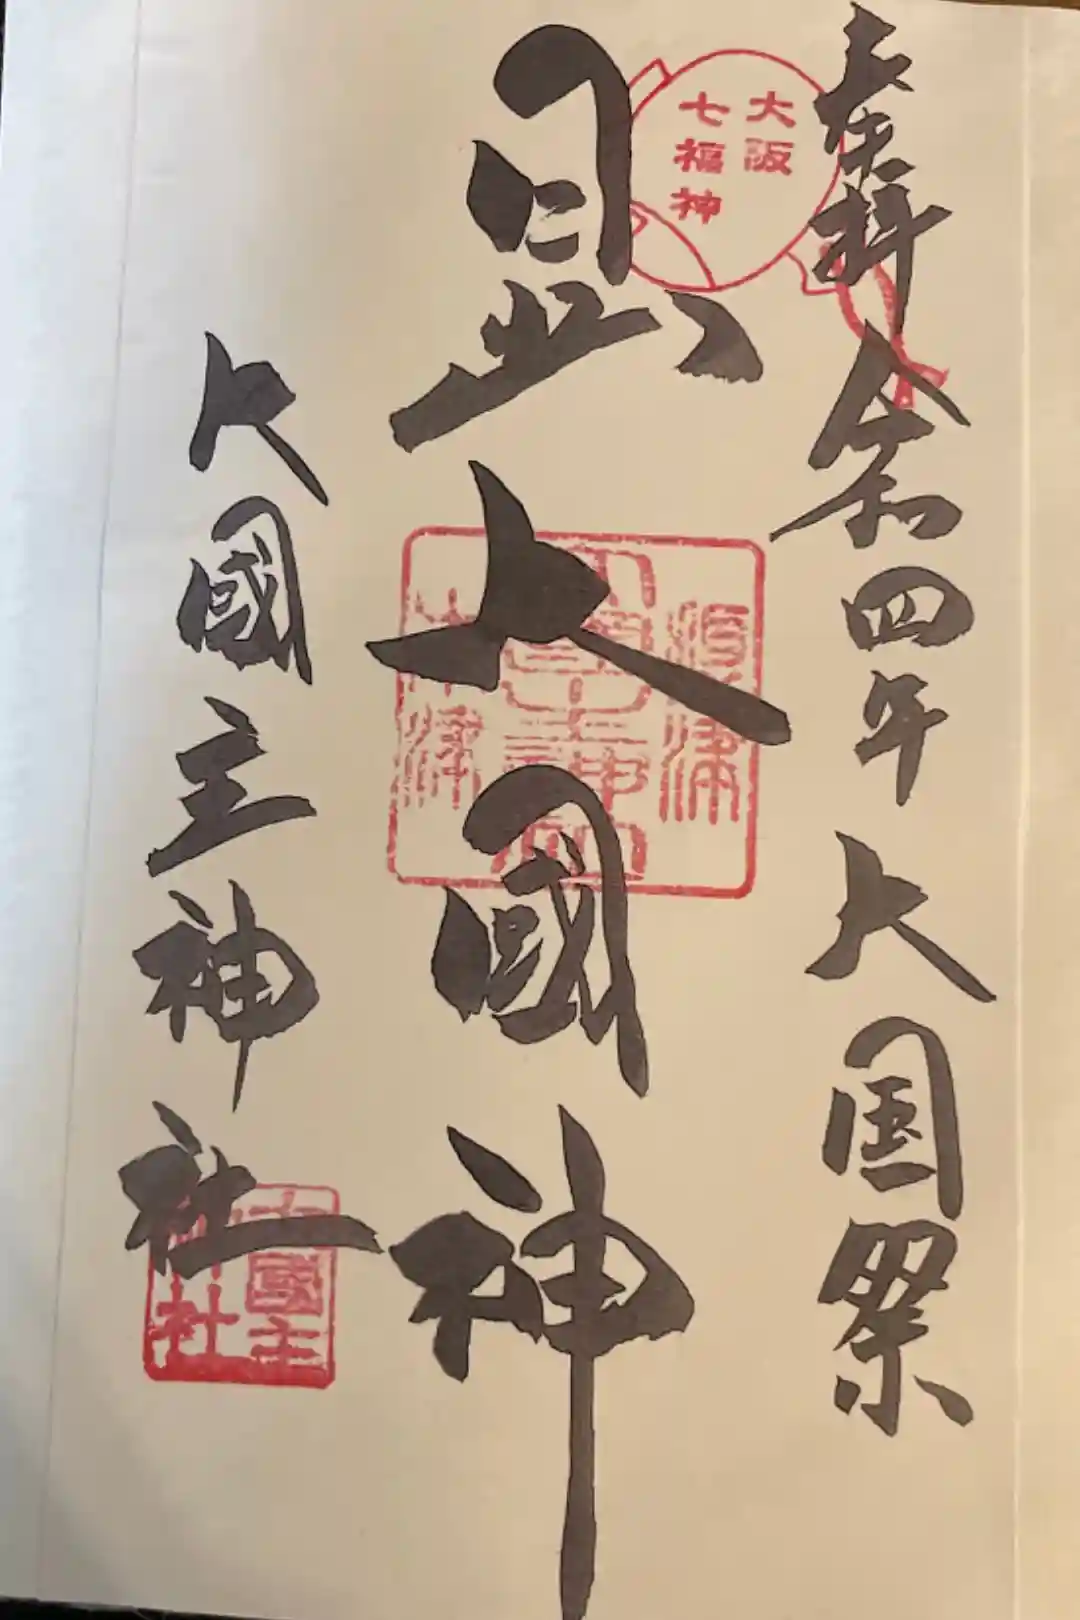 奉拝 令和四年 大国祭
大阪
七福神
日出大國神
大國主神社
大國主
神社